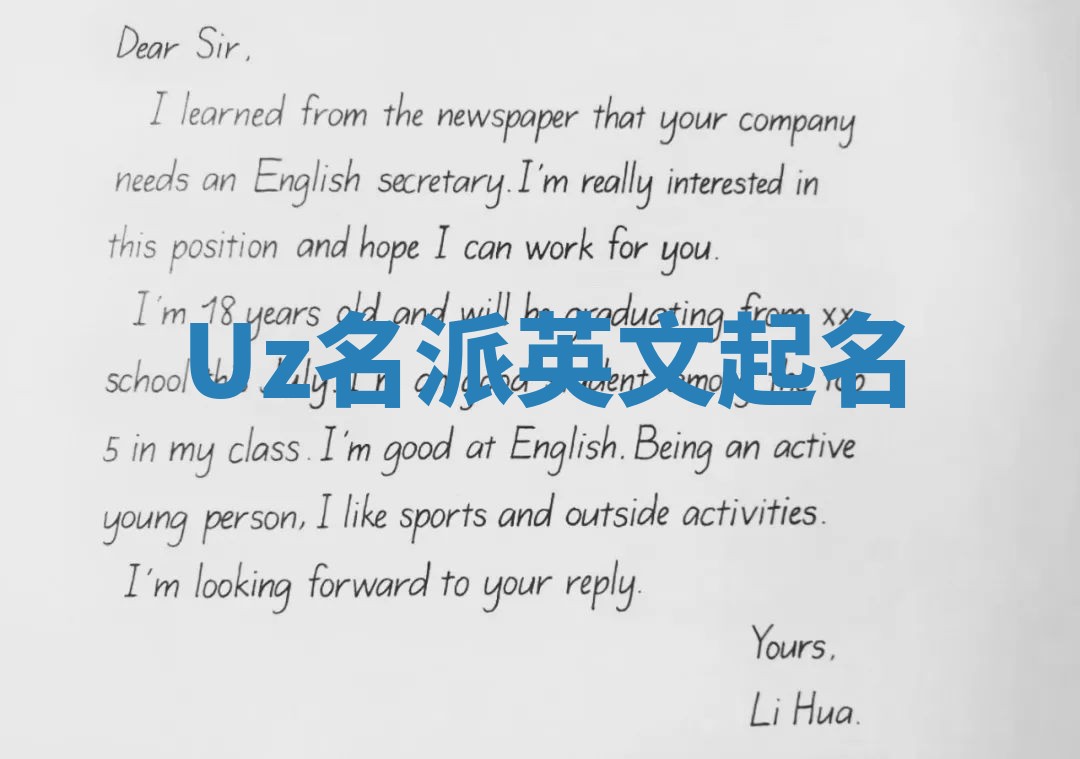 Dear Sir,
I learned from the newspaper that your company
needs an English secretary. I'm really interested in
this position and hope I can work for you.
I'm 18 years old and will be graduating from xx
Uz名派英文起名
school this July. I'm a good student among the top
5 in my class. I'm good at English. Being an active
young person, I like sports and outside activities.
I'm looking forward to your reply.
Yours,
Li Hua.